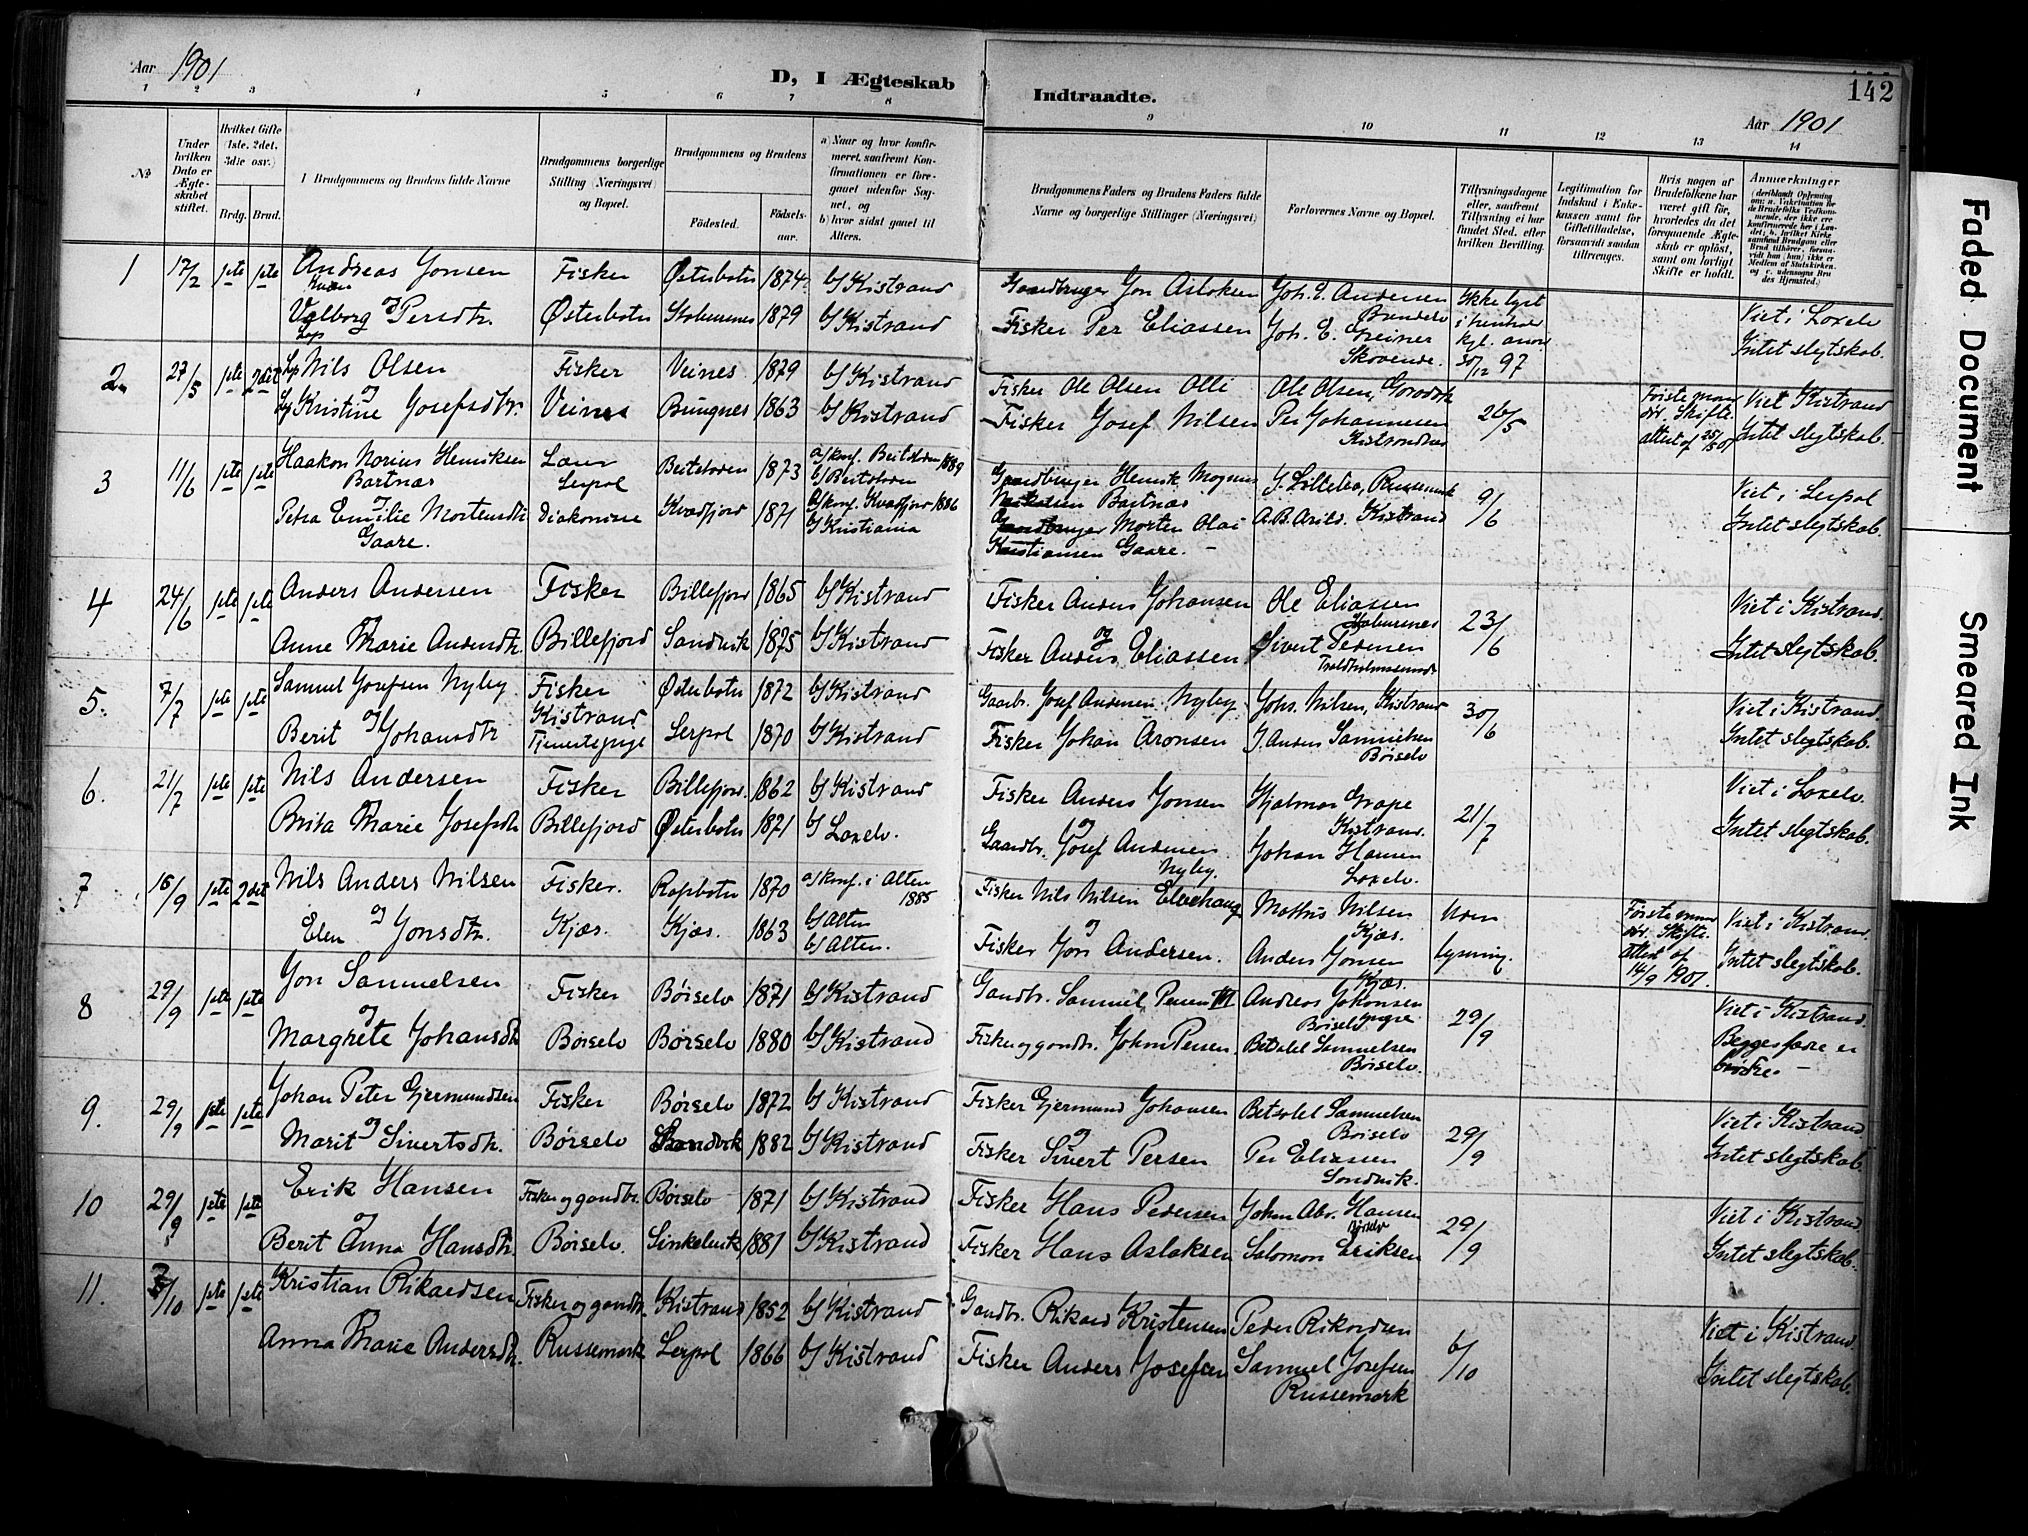 Aar 1901
D, I Ægteskab
Indtraadte.
142
Aar 1901
1 2 3 4 5 6 7 8 9 10 11 12 13 14
No
Under hvilken Dato er Ægteskabet stiftet.
Hvilket Gifte (1ste, 2det, 3die osv.)
Brdg. Brud.
Brudgommens og Brudens fulde Navne
Brudgommens borgerlige Stilling (Næringsvei) og Bopæl.
Brudgommens og Brudens
Fødested. Fødselsaar.
a) Naar og hvor konfirmeret, saafremt Konfirmationen er foregaaet udenfor Sognet, og
b) hvor sidst gaaet til Alters.
Brudgommens Faders og Brudens Faders fulde Navne og borgerlige Stillinger (Næringsvei)
Forlovernes Navne og Bopæl.
Tillysningsdagene eller, saafremt Tillysning ei har fundet Sted, efter hvilken Bevilling.
Legitimation for Indskud i Enkekassen samt for Giftetilladelse, forsaavidt saadan tiltrænges.
Hvis nogen af Brudefolkene har været gift før, hvorledes da det foregaaende Ægteskab er opløst, samt om lovligt Skifte er holdt.
Anmærkninger
1 17/2 1ste 1ste Andreas Jonsen Fisker Østerbotn 1874 b) Kistrand Gaardbruger Jon Aslaksen Joh. E. Andersen
og Valborg Persdtr. Østerbotn Stabursnes 1879 b) Kistrand Fisker Per Eliassen Joh. E. Greiner 97
Viet i Laxelv
Intet slegtskab.
2 27/5 1ste 2det Nils Olsen Fisker Veines 1879 b) Kistrand Fisker Ole Olsen Olli Ole Olsen,
og Kristine Josefsdtr. Veines Brugnes 1863 b) Kistrand Fisker Josef Nilsen Per Johannesen Kistrandnes 26/5
Viet Kistrand
Intet slegtskab.
3 11/6 1ste 1ste Haakon Norius Henriksen Bartnæs Beitstaden 1873 a) konf. Beitstaden 1889 b) Beitstaden Gaardbruger Henrik Bartnæs J. Lilleeby, Russemark
og Petra Emilie Mortensdtr Gaare. Diakonisse Kvædfjord 1871 a) konf. Kvædfjord 1886 b) Kristiania Gaardbruger Morten Olai Kristiansen Gaare. A. B. Arild. Kistrand 9/6
Viet i Lerpol
Intet slegtskab.
4 24/6 1ste 1ste Anders Andersen Fisker Billefjord 1865 b) Kistrand Fisker Anders Johansen Ole Eliassen Stabursnes
og Anne Marie Andersdtr. Billefjord Sandvik 1875 b) Kistrand og Fisker Anders Eliassen Sivert Pedersen Troldholmsund 23/6
Viet i Kistrand.
Intet slegtskab.
5. 7/7 1ste 1ste Samuel Josefsen Nyby Fisker Kistrand Østerbotn 1872 b) Kistrand Gaardbr. Josef Andersen Nyby Johs. Nilsen, Kistrand
og Berit Johansdtr Tjenestepige Lerpol 1870 b) Kistrand Fisker Johan Aronsen J. Anders Samuelsen Børselv 30/6
Viet i Kistrand.
Intet slegtskab.
6. 21/7 1ste 1ste Nils Andersen Fisker Billefjord. 1862 b) Kistrand Fisker Anders Jonsen Hjalmar Grape Kistrand.
og Brita Marie Josefsdtr Billefjord Østerbotn 1871 b) Laxelv. og Gaardbr. Josef Andersen Nyby. Johan Hansen Laxelv. 21/7
Viet i Laxelv.
Intet slegtskab.
7 16/9 1ste 2det Nils Anders Nilsen Fisker. Rafsbotn 1870 a) konf. i Alten 1885 b) Alten Fisker Nils Nilsen Elvehaug Mathis Nilsen Kjæs.
og Elen Jonsdtr. Kjæs. Kjæs. 1863 b) Alten. og Fisker Jon Andersen. Anders Jonsen Kjæs. Uden lysning.
Første mand dr. Skifteattest af 14/9 1901.
Viet i Kistrand.
Intet slegtskab.
8 29/9 1ste 1ste Jon Samuelsen Fisker Børselv 1871 b) Kistrand Gaardbr. Samuel Persen Andreas Johansen Yngre Børselv
og Margrete Johansdtr Børselv Børselv 1880 b) Kistrand Fisker og gaardbr. Johan Persen. Betsalel Samuelsen Børselv. 29/9
Viet i Kistrand.
Begges fædre er brødre. –
9. 29/9 1ste 1ste Johan Peter Gjermundsen Fisker Børselv 1872 b) Kistrand Fisker Gjermund Johansen Betsalel Samuelsen Børselv
og Marit Sivertsdtr. Børselv Sandvik 1882 b) Kistrand og Fisker Sivert Persen Per Eliassen Sandvik. 29/9
Viet i Kistrand.
Intet slegtskab.
10 29/9 1ste 1ste Erik Hansen Fisker og gaardbr. Børselv 1871 b) Kistrand Fisker Hans Pedersen Johan Abr. Hansen Børselv
og Berit Anna Hansdtr. Børselv. Sinkelvik 1881 b) Kistrand Fisker Hans Aslaksen Salomon Eriksen 29/9
Viet i Kistrand.
Intet slegtskab.
11. /10 1ste 1ste Kristian Rikardsen Fisker og gaardbr. Kistrand 1852 b) Kistrand Gaardbr. Rikard Kristensen Peder Rikardsen
Anna Marie Andersdtr. Russemark Lerpol 1866 b) Kistrand Fisker Anders Josefsen Samuel Josefsen Russemark 6/10
Viet i Kistrand.
Intet slegtskab.
Faded Document
Smeared Ink